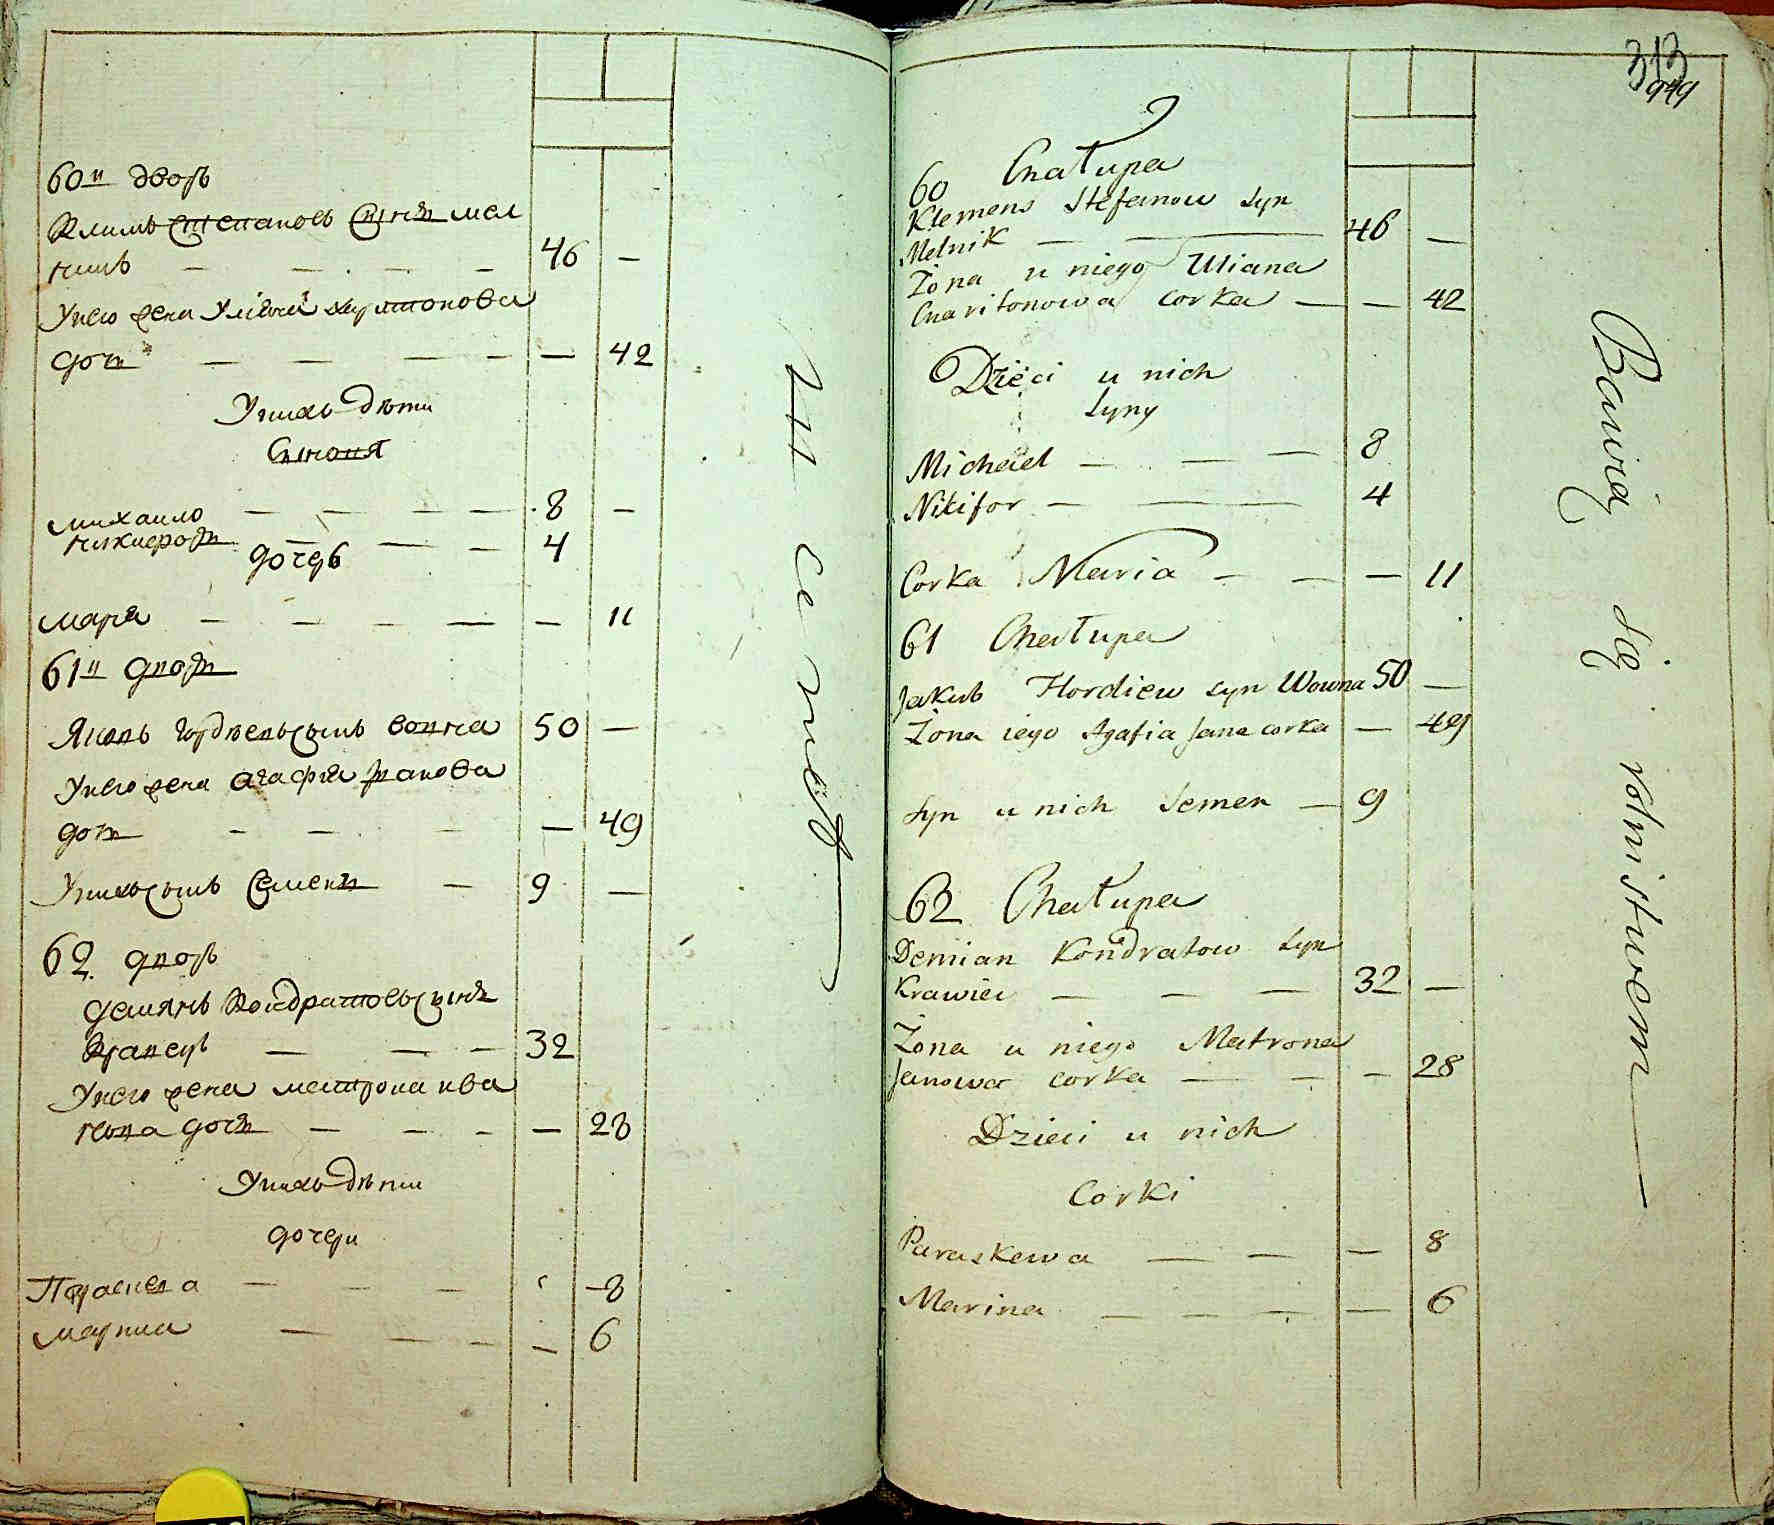 60й дворъ
Климъ Степановъ Сынъ мел
никъ — — — — 46 —
У него жена Улiяна Харитонова
дочь — — — — — 42
У нихъ дѣти
Сыновя
михаило — — — — 8 —
никифоръ — — — 4
дочерь
маря — — — — — 11
61й дворъ
Яковъ Гордѣевъ сынъ вовна 50 —
У него жена агафiя Иванова
дочь — — — — 49
У нихъ сынъ Семенъ — 9 —
62. дворъ
демянъ Кондратовъ сынъ
Кравецъ — — — 32
У него жена матрона ива
нова дочь — — — — 28
У нихъ дѣти
дочери
Параскева — — — 8
марина — — — — 6
313
949
60 Chałupa
Klemens Stefanow Syn
Melnik — — 46 —
Żona u niego Uliana
Charitonowa Corka — — 42
Dzieci u nich
Syny
Michaiel — — — 8
Nikifor — — 4
Corka Maria — — — 11
61 Chałupa
Jakub Hordiew syn Wowna 50 —
Żona iego Agafia Jana corka — 49
Syn u nich Semen — 9
62 Chałupa
Demian Kondratow Syn
Krawiec — — — 32 —
Żona u niego Matrona
Janowa corka — — — 28
Dzieci u nich
Corki
Paraskewa — — — 8
Marina — — — — 6
Bawią się rolnistwem